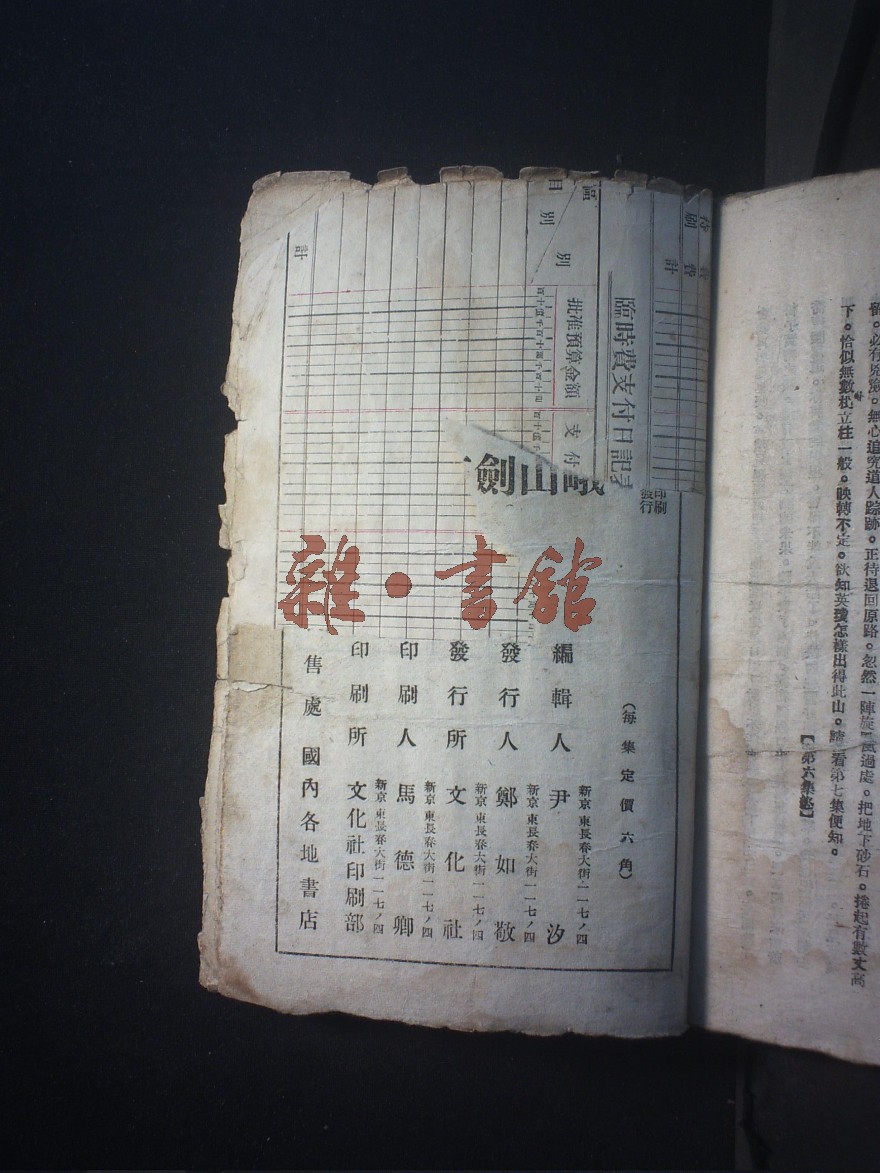 留。必有兇險。無心追究道人踪跡。正待退回原路。忽然一陣旋風過處。把地下砂石。捲起有數丈高
下。恰似無數柱立柱一般。映轉不定。欲知英瓊怎樣出得此山。請看第七集便知。
【第六集終】
計
臨時費支付日記
區別
目別
批准預算金額
支付
計
印刷
發行
峨山劍
(每集定價六角)
新京東長春大街一一七ノ四
編輯人 尹汐
新京東長春大街一一七ノ四
發行人 鄭如敬
新京東長春大街一一七ノ四
發行所 文化社
新京東長春大街一一七ノ四
印刷人 馬德卿
新京東長春大街一一七ノ四
印刷所 文化社印刷部
售處 國內各地書店
雜·書館